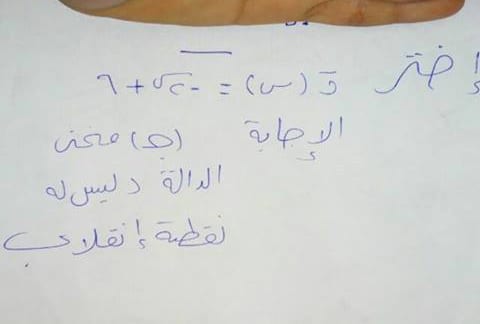 إختر د (س) = -٢س + ٦
الإجابة (جـ) منحنى
الدالة د ليس له
نقطة إنقلاب